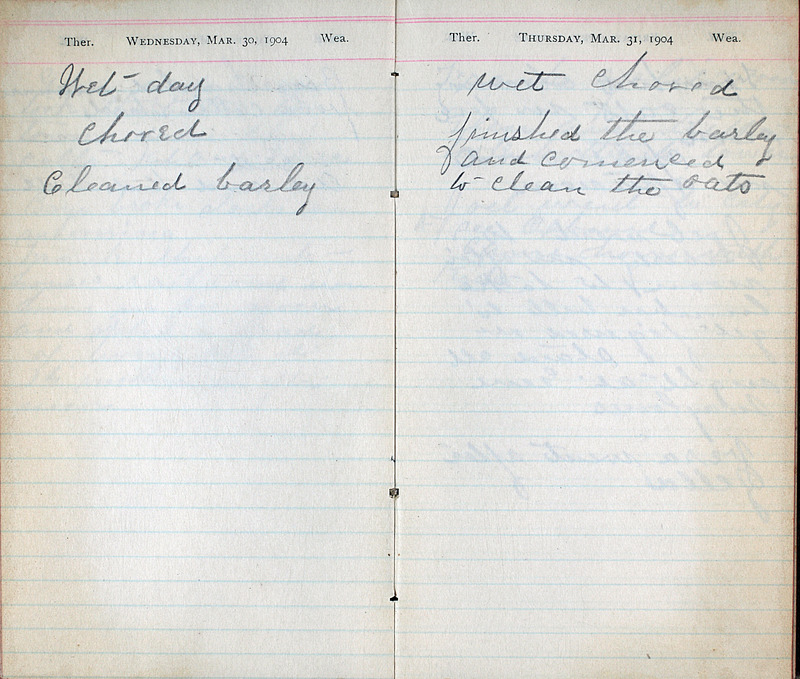 Ther. Wednesday, Mar. 30, 1904 Wea.
Wet day
Chored
Cleaned barley
Ther. Thursday, Mar. 31, 1904 Wea.
wet Chored
finished the barley
and comenced
to clean the oats